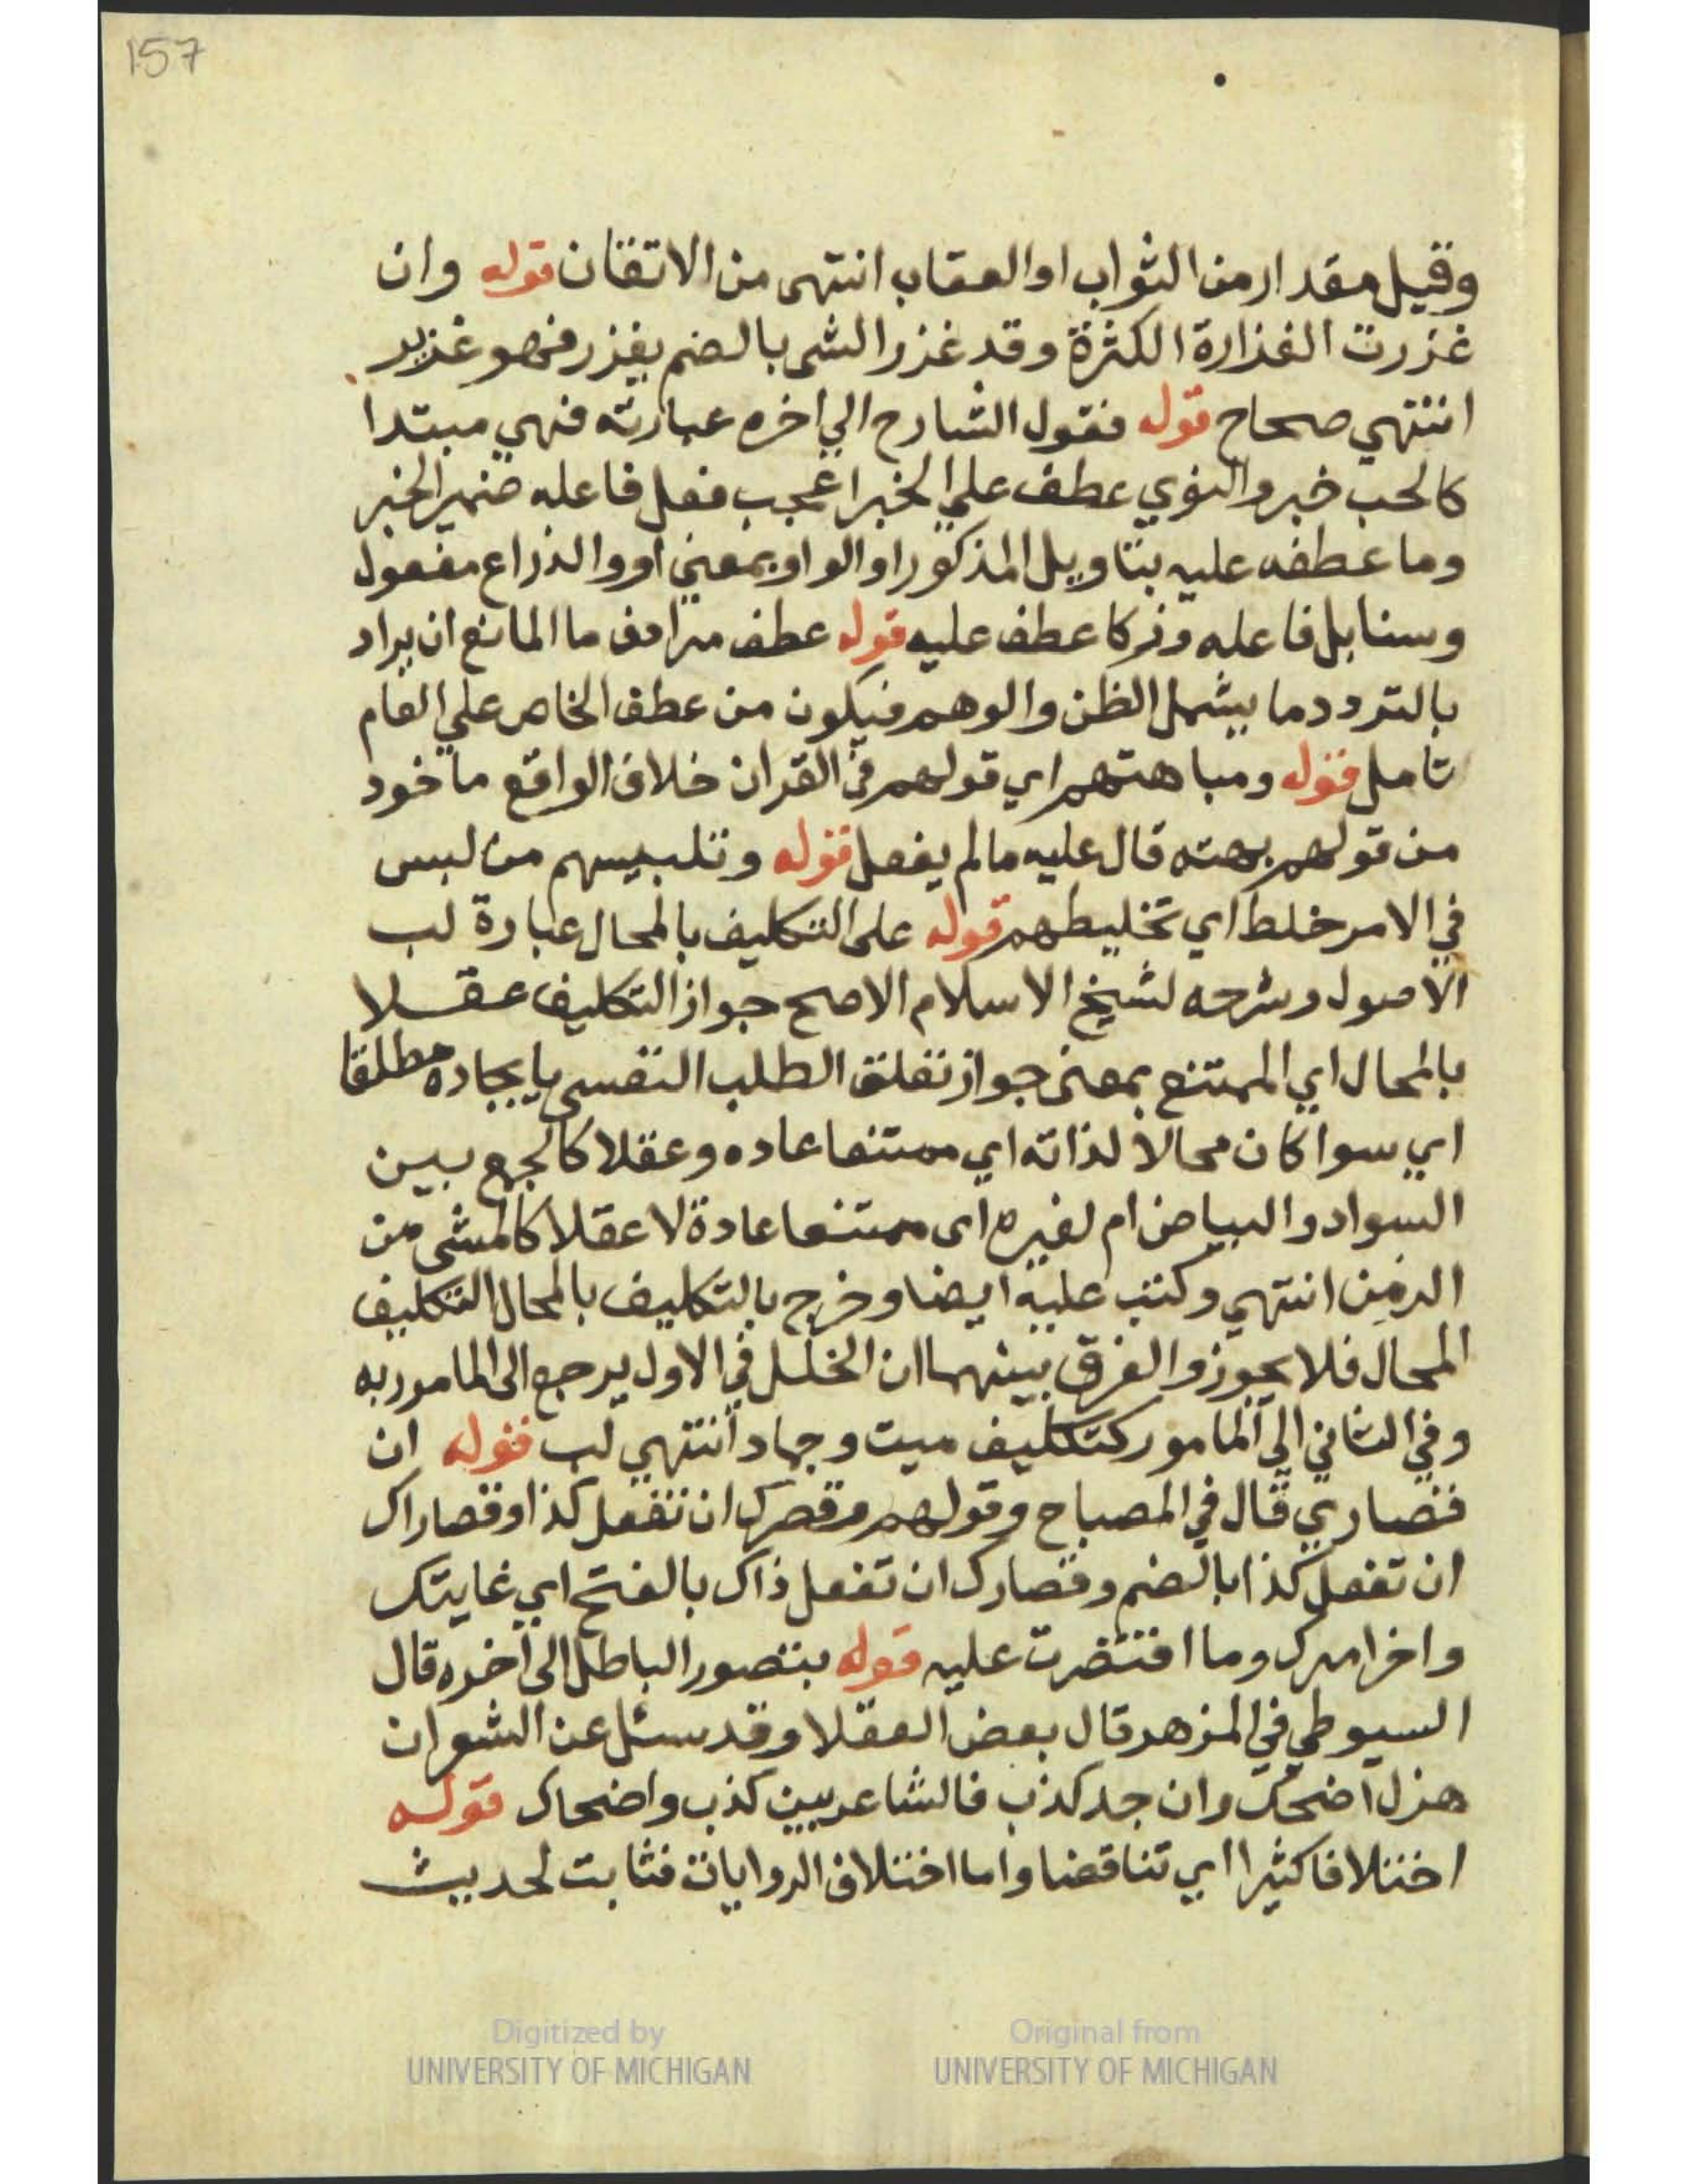 157
وقيل مقدار من الثواب او العقاب انتهى من الاتقان قوله وان
غزرت الغزارة الكثرة وقد غزر الشى بالضم يغزر فهو غزير
انتهي صحاح قوله فقول الشارح الي اخره عبارته فهي مبتدا
كالحب خبر والنوي عطف علي الخبر اعجب فعل فاعله ضمير الخبر
وما عطفه عليه بتاويل المذكور او الواو بمعني او والذراع مفعول
وسنابل فاعله وزكا عطف عليه قوله عطف مرادف ما المانع ان يراد
بالتردد ما يشمل الظن والوهم فيكون من عطف الخاص علي العام
تامل قوله ومباهتهم اي قولهم في القران خلاف الواقع ماخود
من قولهم بهته قال عليه ما لم يفعل قوله وتلبيسهم من لبس
في الامر خلط اي تخليطهم قوله على التكليف بالمحال عبارة لب
الاصول وشرحه لشيخ الاسلام الاصح جواز التكليف عقلا
بالمحال اي الممتنع بمعنى جواز تعلق الطلب النفسي بايجاده مطلقا
اي سوا كان محالا لذاته اي ممتنعا عاده وعقلا كالجمع بين
السواد والبياض ام لغيره اى ممتنعا عادة لا عقلا كالمشى من
الزمِن انتهي وكتب عليه ايضا وخرج بالتكليف بالمحال التكليف
المحال فلا يجوز والفرق بينهما ان الخلل في الاول يرجع الى المامور به
وفي الثاني الي المامور كتكليف ميت وجماد انتهي لب قوله ان
قصاري قال في المصباح وقولهم وقصرك ان تفعل كذا وقصاراك
ان تفعل كذا بالضم وقصارك ان تفعل ذاك بالفتح اي غايتك
واخر امرك وما اقتصرت عليه قوله بتصور الباطل الى اخره قال
السيوطي في المزهر قال بعض العقلا وقد سئل عن الشعر ان
هزل اضحك وان جد كذب فالشاعر بين كذب واضحاك قوله
اختلافا كثيرا اي تناقضا واما اختلاف الروايات فثابت لحديث
Digitized by
UNIVERSITY OF MICHIGAN
Original from
UNIVERSITY OF MICHIGAN